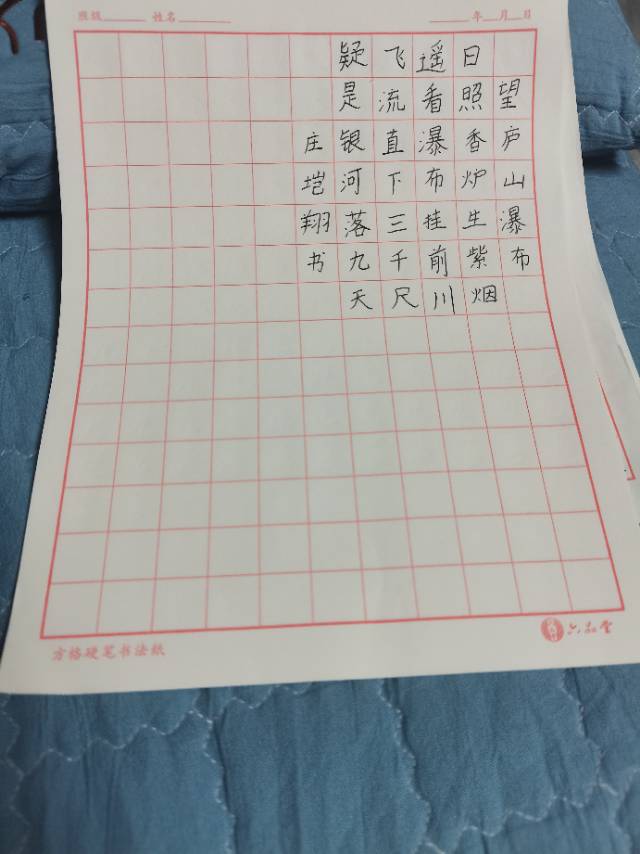 班级 姓名 年 月 日
望庐山瀑布
日照香炉生紫烟
遥看瀑布挂前川
飞流直下三千尺
疑是银河落九天
庄垲翔书
方格硬笔书法纸
六品堂